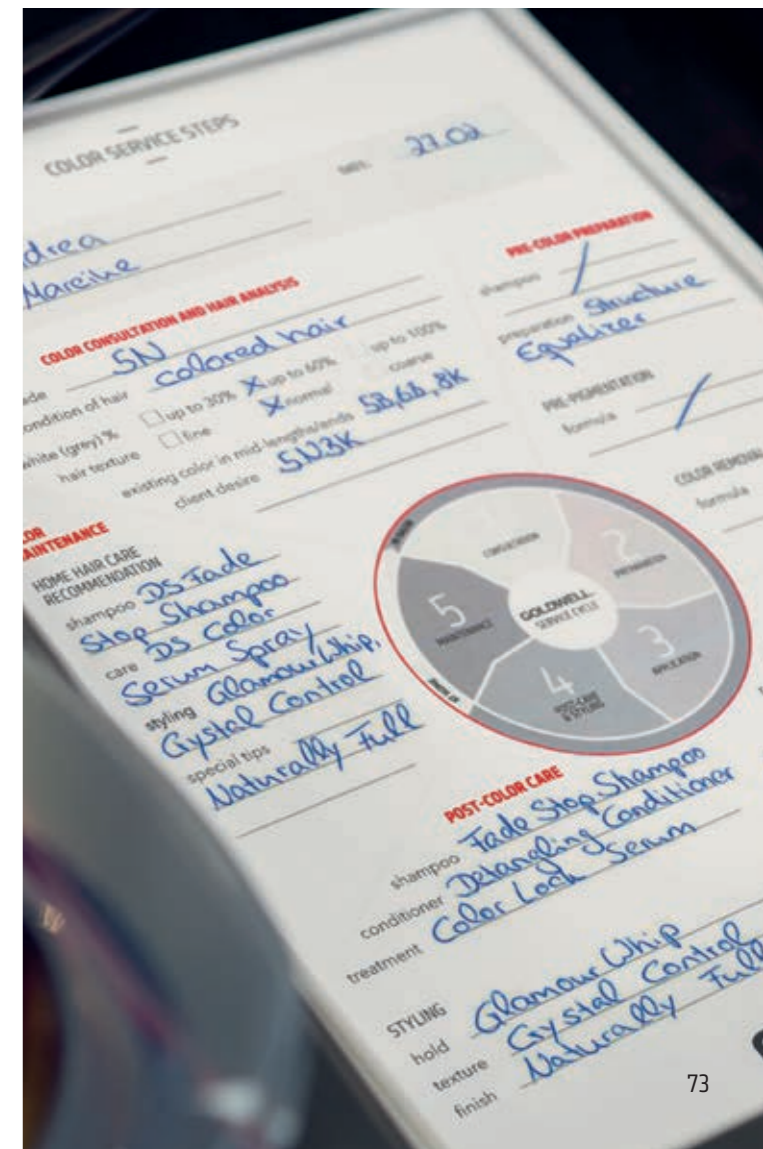 COLOR SERVICE STEPS
DATE 27.02
drea
Mareike
COLOR CONSULTATION AND HAIR ANALYSIS
ade 5N
ondition of hair colored hair
white (grey) % up to 30% X up to 60% up to 100%
hair texture fine X normal coarse
existing color in mid-lengths/ends 5B, 6B, 8K
client desire 5N3K
PRE-COLOR PREPARATION
shampoo /
preparation Structure
Equalizer
PRE-PIGMENTATION
formula /
COLOR REMOVAL
formula
LOR
AINTENANCE
HOME HAIR CARE
RECOMMENDATION
shampoo DS-Fade
Stop Shampoo
care DS Color
Serum Spray
styling Glamour Whip,
Crystal Control
special tips
Naturally Full
CONSULTATION
2
PREPARATION
3
APPLICATION
4
POST-CARE
& STYLING
5
MAINTENANCE
GOLDWELL
SERVICE CYCLE
POST-COLOR CARE
shampoo Fade Stop Shampoo
conditioner Detangling Conditioner
treatment Color Lock Serum
STYLING
hold Glamour Whip
texture Crystal Control
finish Naturally Full
73